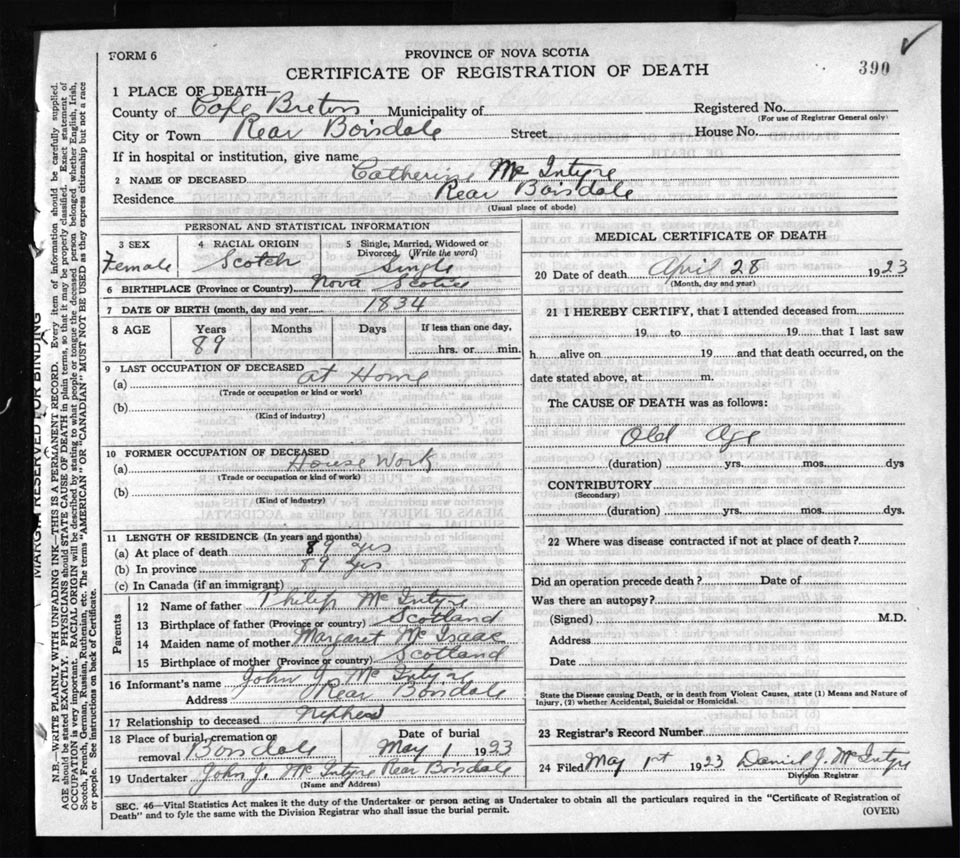 FORM 6
PROVINCE OF NOVA SCOTIA
CERTIFICATE OF REGISTRATION OF DEATH
390
1 PLACE OF DEATH—
County of Cape Breton Municipality of Registered No.
(For use of Registrar General only)
City or Town Rear Boisdale Street House No.
If in hospital or institution, give name
2 NAME OF DECEASED Catherine Mc Intyre
Residence Rear Boisdale
(Usual place of abode)
PERSONAL AND STATISTICAL INFORMATION
3 SEX 4 RACIAL ORIGIN 5 Single, Married, Widowed or
Divorced, (Write the word)
Female Scotch Single
6 BIRTHPLACE (Province or Country) Nova Scotia
7 DATE OF BIRTH (month, day and year) 1834
8 AGE Years Months Days If less than one day,
89 hrs. or min.
9 LAST OCCUPATION OF DECEASED
(a) at Home
(Trade or occupation or kind or work)
(b)
(Kind of industry)
10 FORMER OCCUPATION OF DECEASED
(a) House Work
(Trade or occupation or kind of work)
(b)
(Kind of industry)
11 LENGTH OF RESIDENCE (In years and months)
(a) At place of death 89 yrs
(b) In province 89 yrs
(c) In Canada (if an immigrant)
Parents
12 Name of father Philip Mc Intyre
13 Birthplace of father (Province or country) Scotland
14 Maiden name of mother Margaret Mc Isaac
15 Birthplace of mother (Province or country) Scotland
16 Informant's name John J. Mc Intyre
Address Rear Boisdale
17 Relationship to deceased Nephew
18 Place of burial, cremation or Date of burial
removal Boisdale May 1 1923
19 Undertaker John J. Mc Intyre Rear Boisdale
(Name and Address)
MEDICAL CERTIFICATE OF DEATH
20 Date of death April 28 1923
(Month, day and year)
21 I HEREBY CERTIFY, that I attended deceased from
19 to 19 that I last saw
h alive on 19 and that death occurred, on the
date stated above, at m.
The CAUSE OF DEATH was as follows:
Old Age
(duration) yrs. mos. dys
CONTRIBUTORY
(Secondary)
(duration) yrs. mos. dys.
22 Where was disease contracted if not at place of death?
Did an operation precede death? Date of
Was there an autopsy?
(Signed) M.D.
Address
Date
State the Disease causing Death, or in death from Violent Causes, state (1) Means and Nature of
Injury, (2) whether Accidental, Suicidal or Homicidal.
23 Registrar's Record Number
24 Filed May 1st 1923 Daniel J. McIntyre
Division Registrar
SEC. 46—Vital Statistics Act makes it the duty of the Undertaker or person acting as Undertaker to obtain all the particulars required in the "Certificate of Registration of
Death" and to fyle the same with the Division Registrar who shall issue the burial permit.
(OVER)
MARGIN RESERVED FOR BINDING
N.B.—WRITE PLAINLY WITH UNFADING INK—THIS IS A PERMANENT RECORD. Every item of information should be carefully supplied.
AGE should be stated EXACTLY. PHYSICIANS should STATE CAUSE OF DEATH in plain terms, so that it may be properly classified. Exact statement of
OCCUPATION is very important. RACIAL ORIGIN will be described by stating to what people or tongue the deceased person belonged, whether English, Irish,
Scotch, French, German, Russian, Ruthenian, etc. The terms "AMERICAN" OR "CANADIAN" MUST NOT BE USED as they express citizenship but not a race
or people. See instructions on back of Certificate.